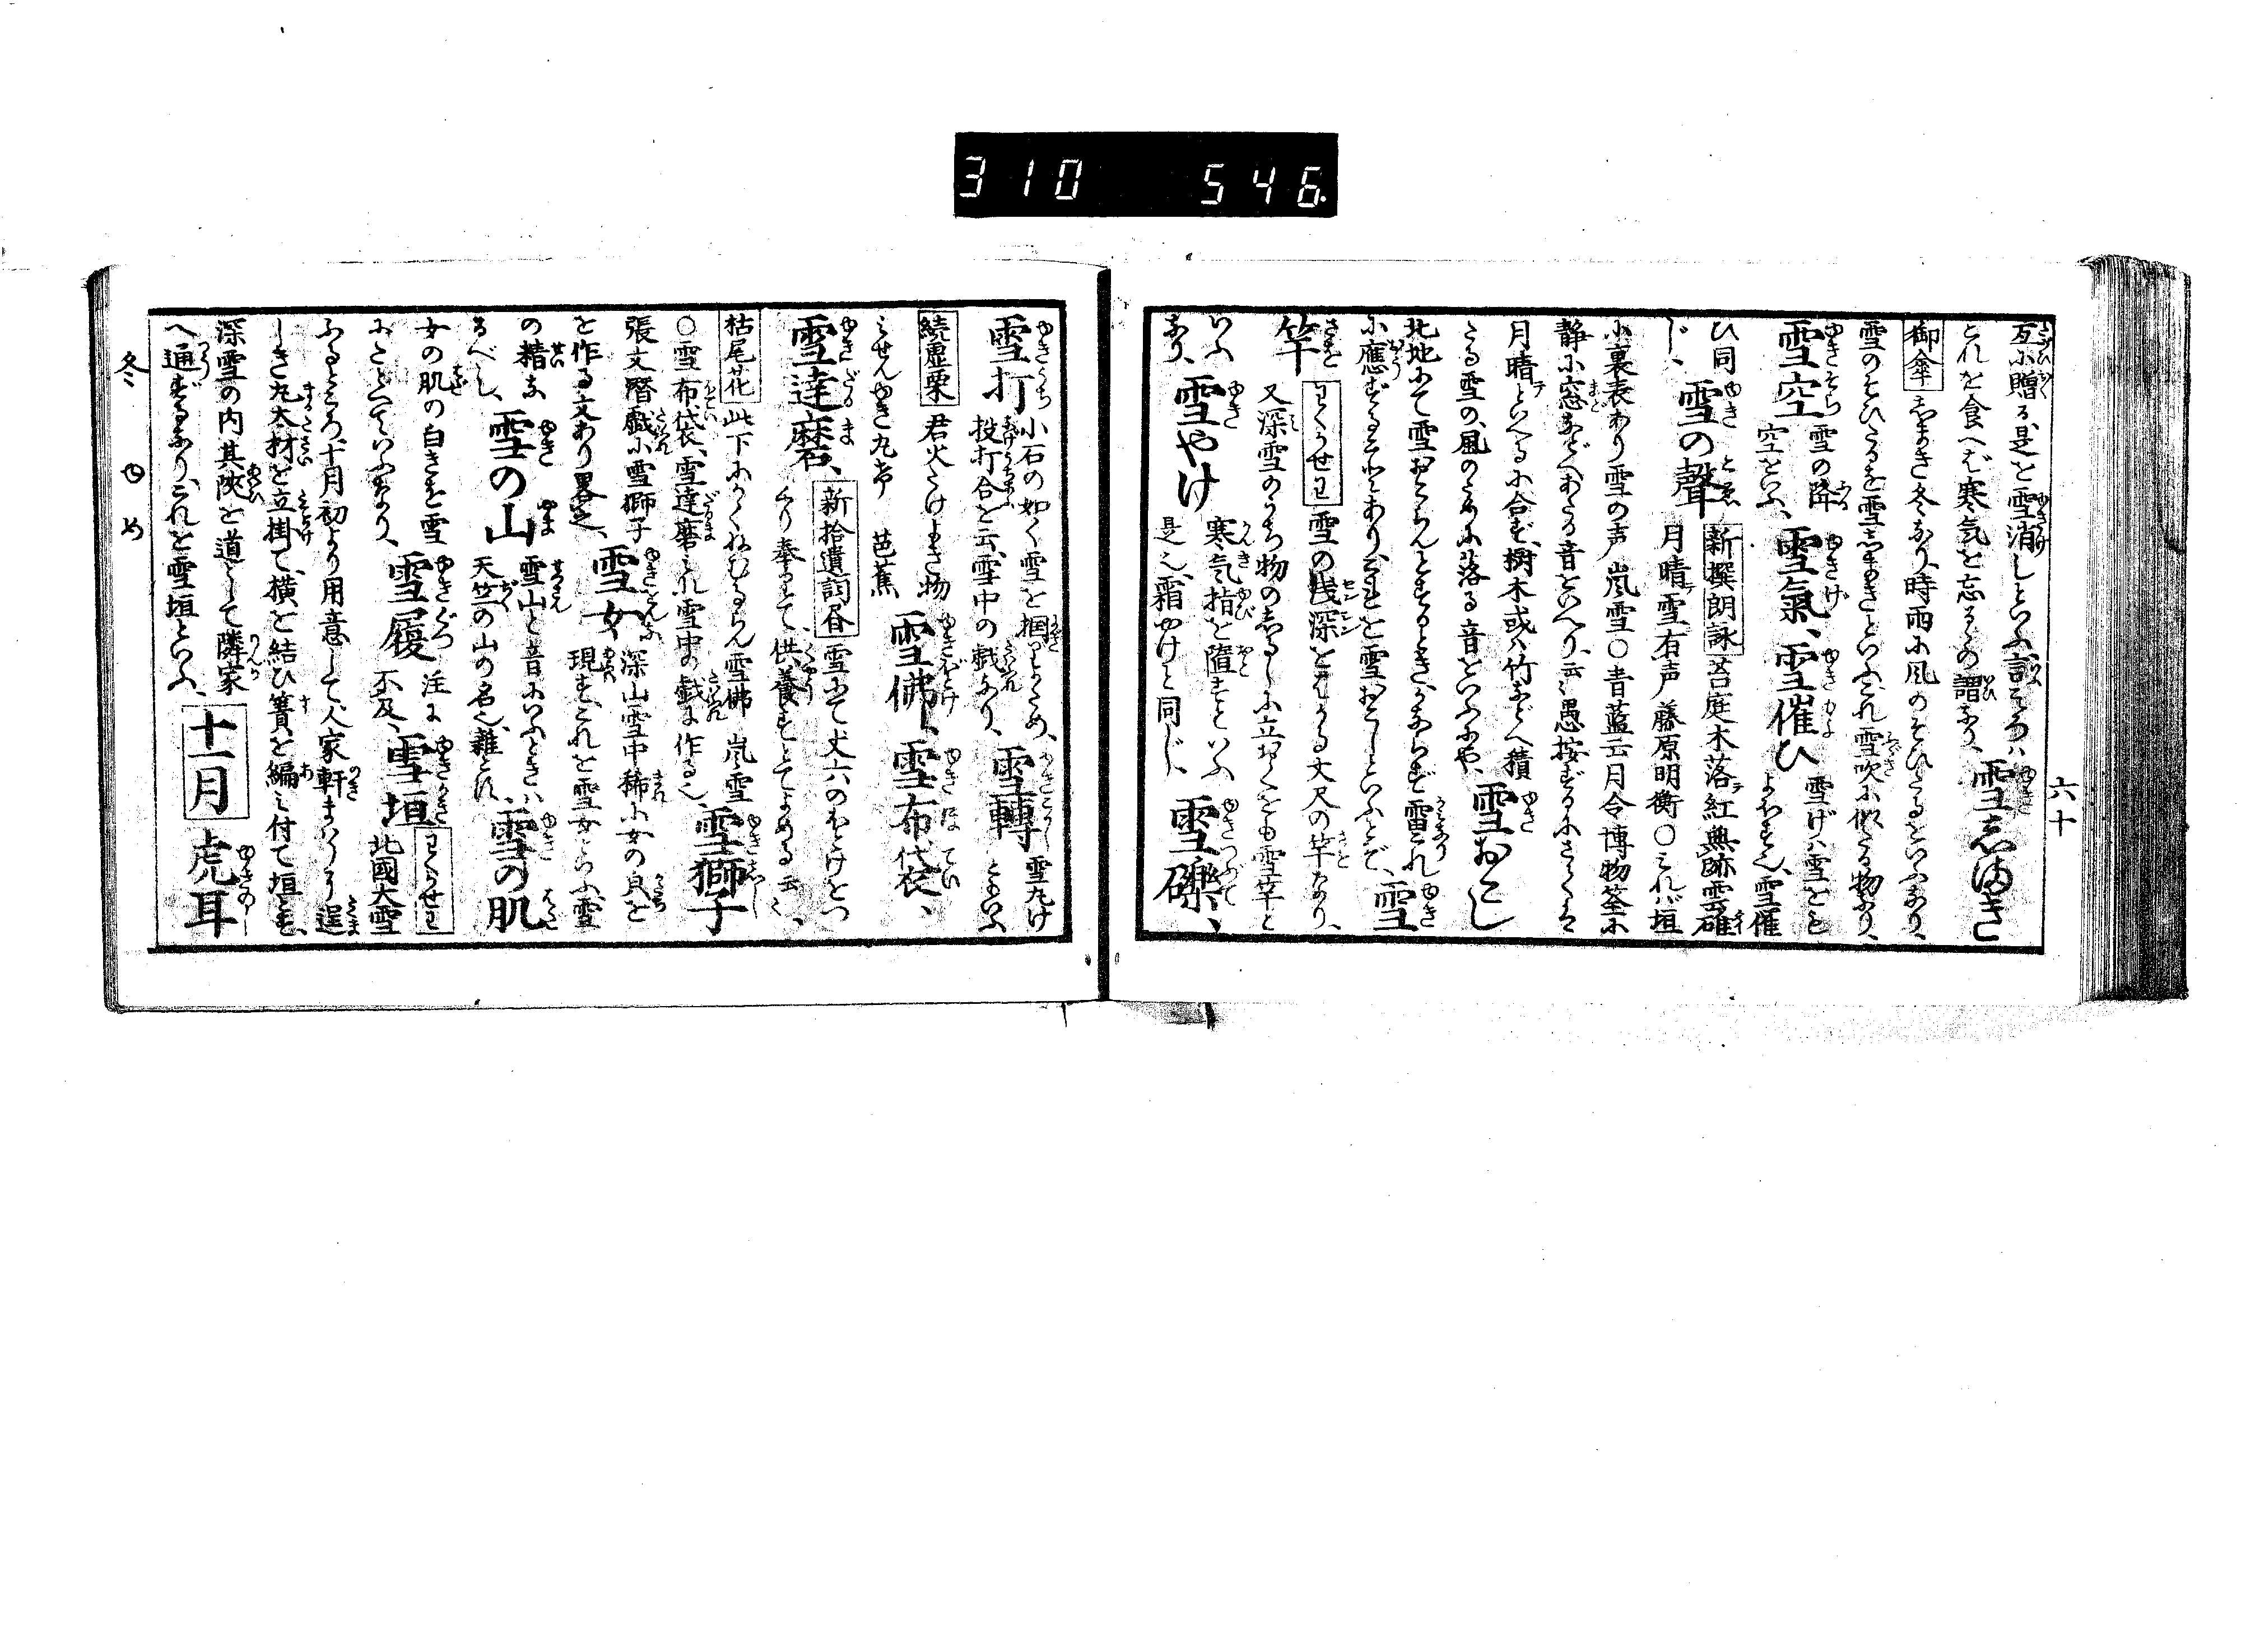 310 546
六十
互に贈る是を雪消しといふ言こゝろハ 雪志まき
これを食へば寒気を忘るゝの謂なり、
御傘 志まき冬なり、時雨に風のそひたるをいふなり、
雪のそひたるを雪志まきといふ、これ雪吹に似たる物なり、
雪空 雪の降空をいふ、 雪氣、雪催ひ 雪げハ雪をもよほす也、雪催
ひ同じ、 雪の聲 新撰朗詠 苔庭木落紅無跡雲碓
月晴雪有声 藤原明衡〇これバ垣
に裏表あり雪の声 嵐雪〇青藍云月令博物筌に
静に窓などへあたる音をいへり、云〻愚按ずるにさゝくは
月晴といへるに合ず、樹木或ハ竹などへ積
たる雪の、風のために落る音をいふにや、 雪おこし
北地にて雪おこらんとするとき、かならず雷これ
に應ずることあり、これを雪おこしといふとぞ、 雪
竿 わくかせわ 雪の浅深をはかる丈尺の竿なり、
又深雪のうち物の志るしに立おくをも雪竿と
いふ 雪やけ 寒気指を墮すといふ
あり、 是也、霜やけと同じ、 雪礫、
雪打 小石の如く雪を掴りかため、 雪轉 雪丸け
投打合と云、雪中の戯なり、 ともいふ
続虚栗 君火たけよき物 雪佛、雪布袋、
みせんゆき丸げ 芭蕉
雪達磨、 新拾遺詞昏 雪にて丈六のほとけをつ
くり奉りて、供養すとてよめる云〻、
枯尾花 此下にかくねむるらん雪佛 嵐雪 雪獅子
〇雪布袋、雪達磨これ雪中の戯に作る也、
張文潜戯に雪獅子
を作る文あり畧之、 雪女 深山雪中稀に女の㒵を
現す、これを雪女といふ、雪
の精な
るべし、 雪の山 雪山と音にいふときハ、
天竺の山の名也、雜とす、 雪の肌
女の肌の白きを雪
にたとへていふなり、 雪履 注に
不及、 雪垣 わくかせわ 北國大雪
ふるところ、十月初より用意して、人家軒まハり逞
しき丸太材を立掛て、横を結ひ簀を編み付て垣とす、
深雪の内其陜を道として隣家
へ通ずるなり、これを雪垣といふ、 十一月 虎耳
冬 ゆ め